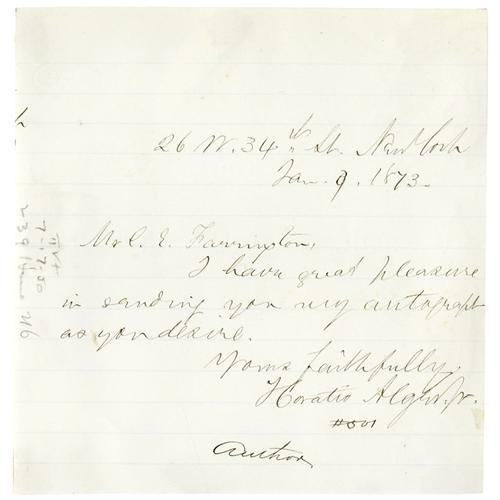 26 W. 34th St. New York
Jan. 9, 1873.
Mr C. E. Farrington,
I have great pleasure
in sending you my autograph
as you desire.
Yours faithfully,
Horatio Alger, Jr.
#501
Author
7-17-50